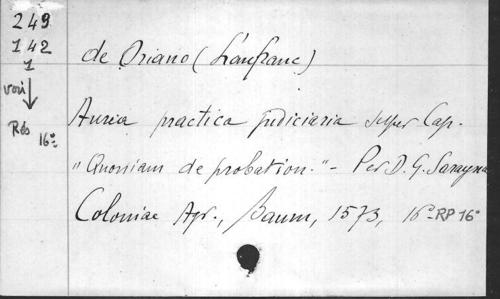 249
142
1
voir
Rés 16º
de Oriano (Lanfranc)
Aurea practica judiciaria super Cap.
"Quoniam de probation." - Per D. G. Sarayna
Coloniae Agr., Baum, 1573, 16º - RP 16º